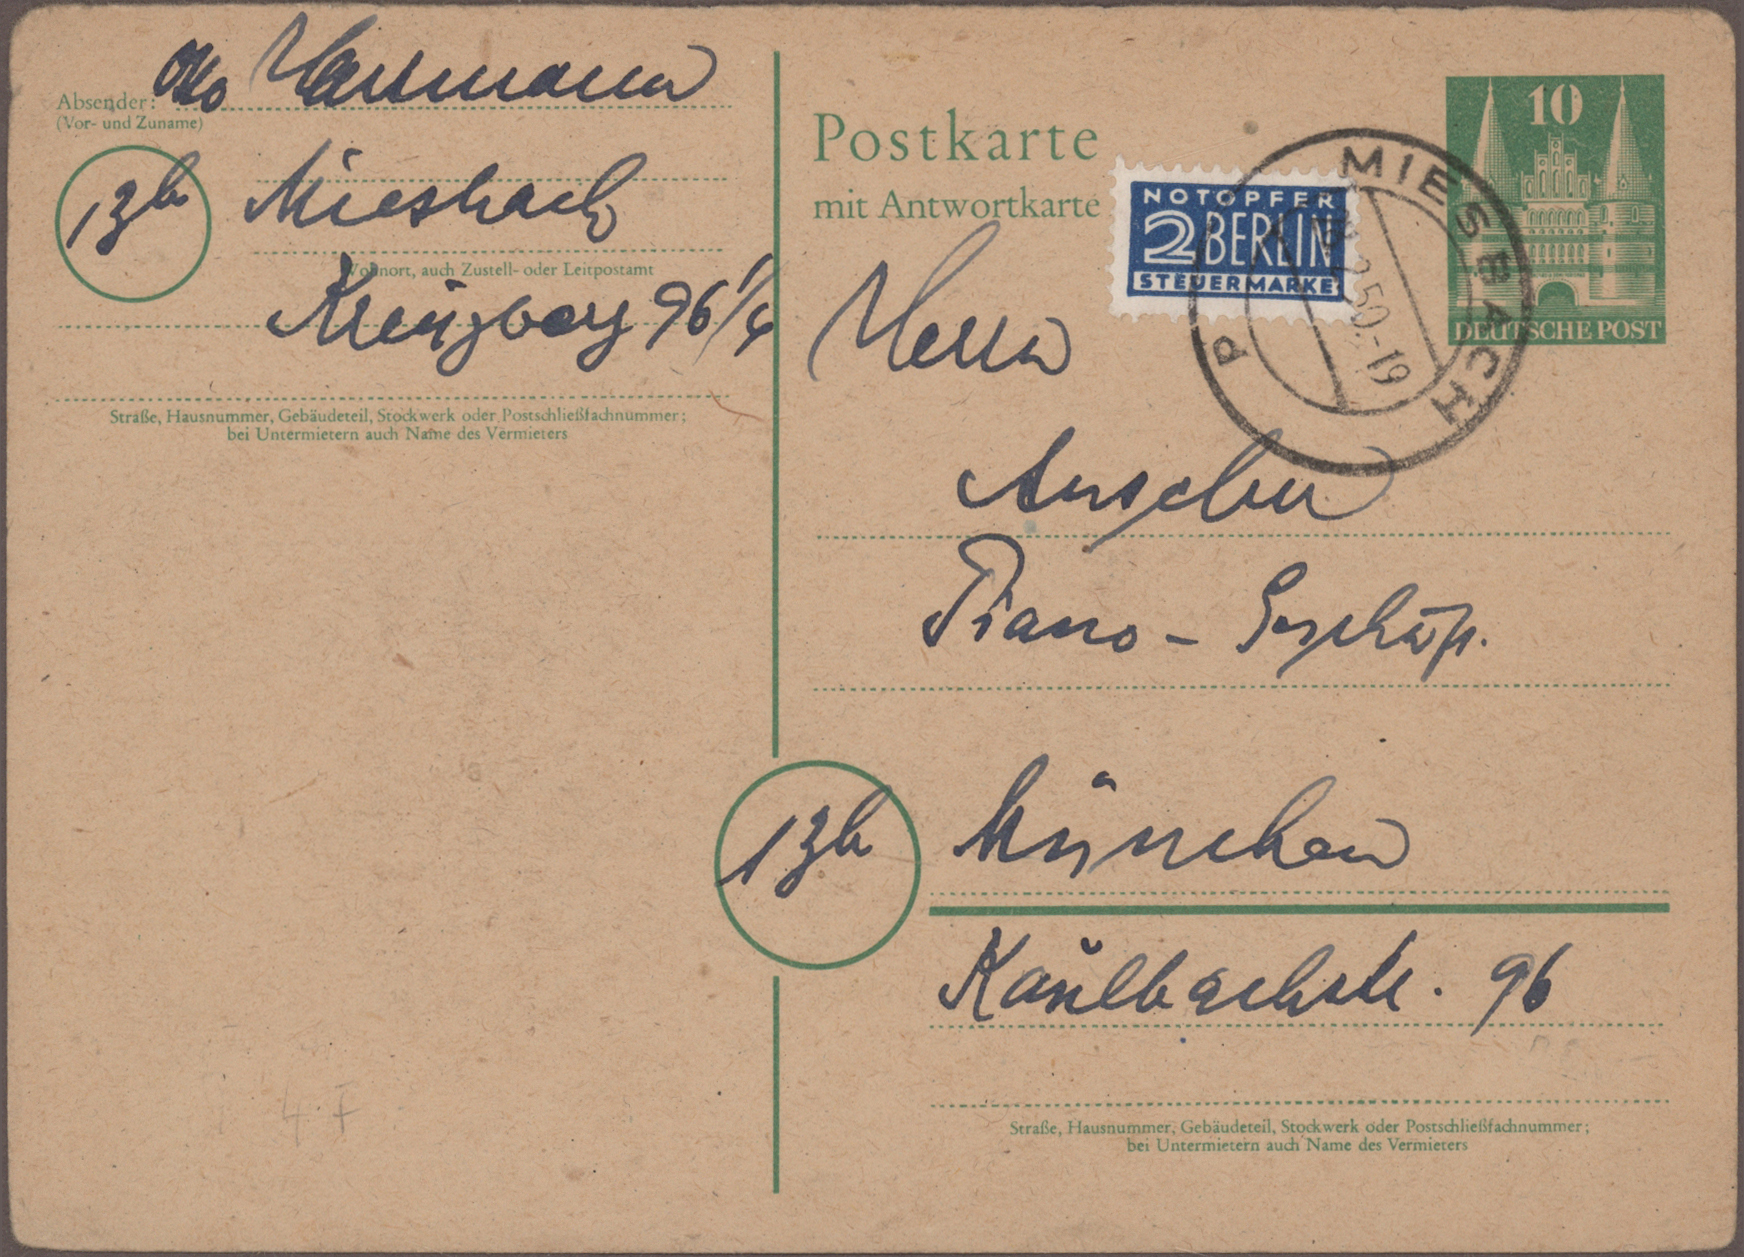 Absender: Otto Hartmann
(Vor- und Zuname)
13b Miesbach
Wohnort, auch Zustell- oder Leitpostamt
96 1/4
Straße, Hausnummer, Gebäudeteil, Stockwerk oder Postschließfachnummer;
bei Untermietern auch Name des Vermieters
Postkarte
mit Antwortkarte
NOTOPFER
2 BERLIN
STEUERMARKE
MIESBACH
2.50.-19
P
10
DEUTSCHE POST
Herrn
Piano - Geschäft.
13b München
Kaulbachstr. 96
Straße, Hausnummer, Gebäudeteil, Stockwerk oder Postschließfachnummer;
bei Untermietern auch Name des Vermieters
4.F